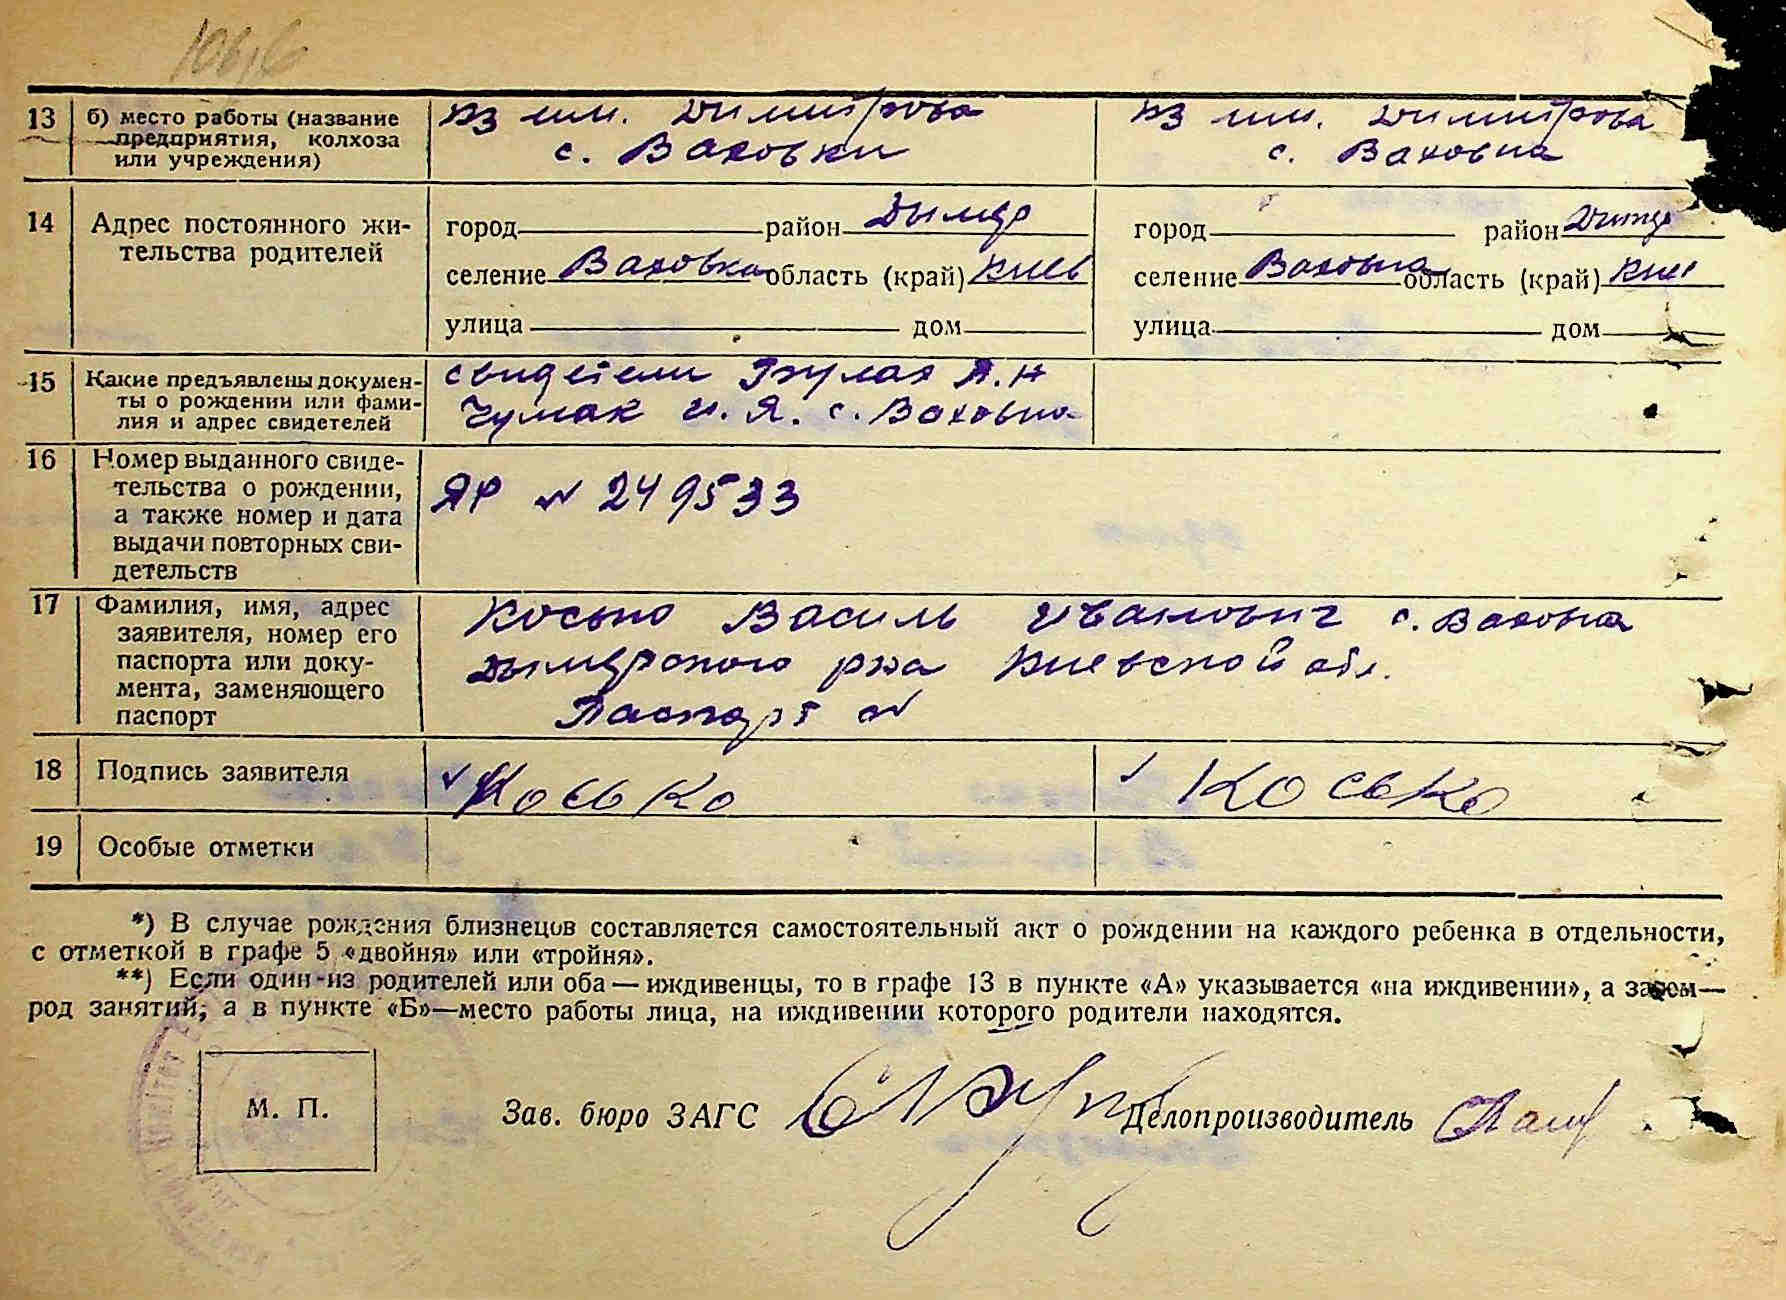 13 б) место работы (название предприятия, колхоза или учреждения)
кз им. Димитрова
с.Ваховки
кз им. Димитрова
с.Ваховка
14 Адрес постоянного жительства родителей
город район Дымер
селение Ваховка область (край) Киев
улица дом
город район Дымер
селение Ваховка область (край) Киев
улица дом
15 Какие предъявлены документы о рождении или фамилия и адрес свидетелей
свидетели П. Н
Чумак И. Я. с. Ваховка
16 Номер выданного свидетельства о рождении, а также номер и дата выдачи повторных свидетельств
ЯР № 249533
17 Фамилия, имя, адрес заявителя, номер его паспорта или документа, заменяющего паспорт
Косько Василь Иванович с. Ваховка
Дымерского р-на Киевской обл.
Паспорт №
18 Подпись заявителя
Косько
Косько
19 Особые отметки
*) В случае рождения близнецов составляется самостоятельный акт о рождении на каждого ребенка в отдельности,
с отметкой в графе 5 «двойня» или «тройня».
**) Если один из родителей или оба — иждивенцы, то в графе 13 в пункте «А» указывается «на иждивении», а затем —
род занятий, а в пункте «Б»—место работы лица, на иждивении которого родители находятся.
М. П.
Зав. бюро ЗАГС
Делопроизводитель